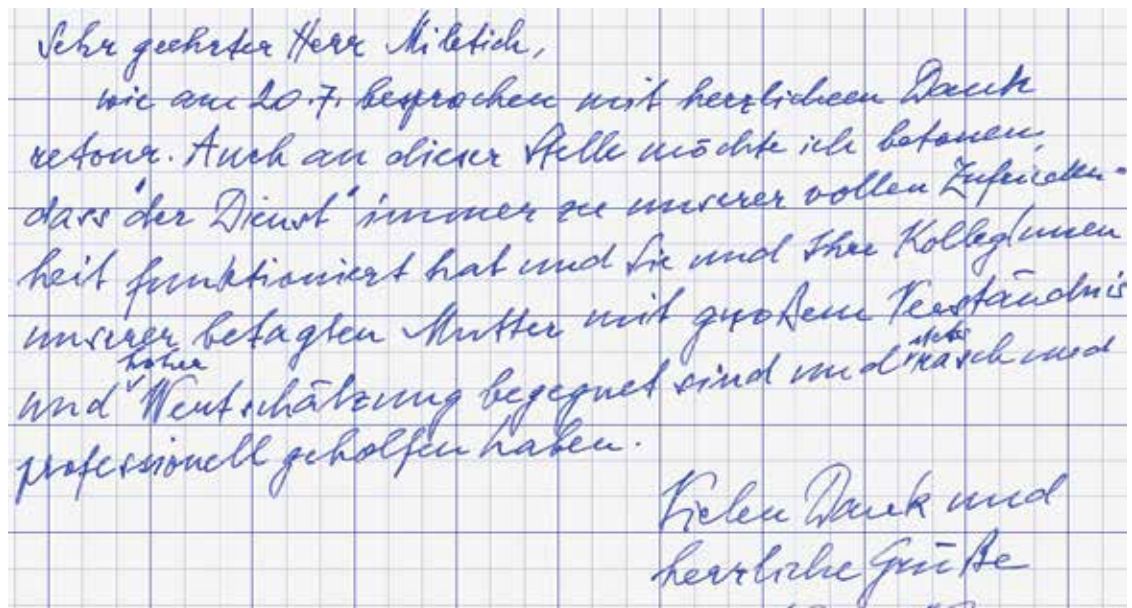 Sehr geehrter Herr Miletich,
wie am 20.7. besprochen mit herzlichem Dank
retour. Auch an dieser Stelle möchte ich betonen,
dass "der Dienst" immer zu unserer vollen Zufrieden-
heit funktioniert hat und Sie und Ihre KollegInnen
unserer betagten Mutter mit großem Verständnis
und hoher Wertschätzung begegnet sind und stets rasch und
professionell geholfen haben.
Vielen Dank und
herzliche Grüße